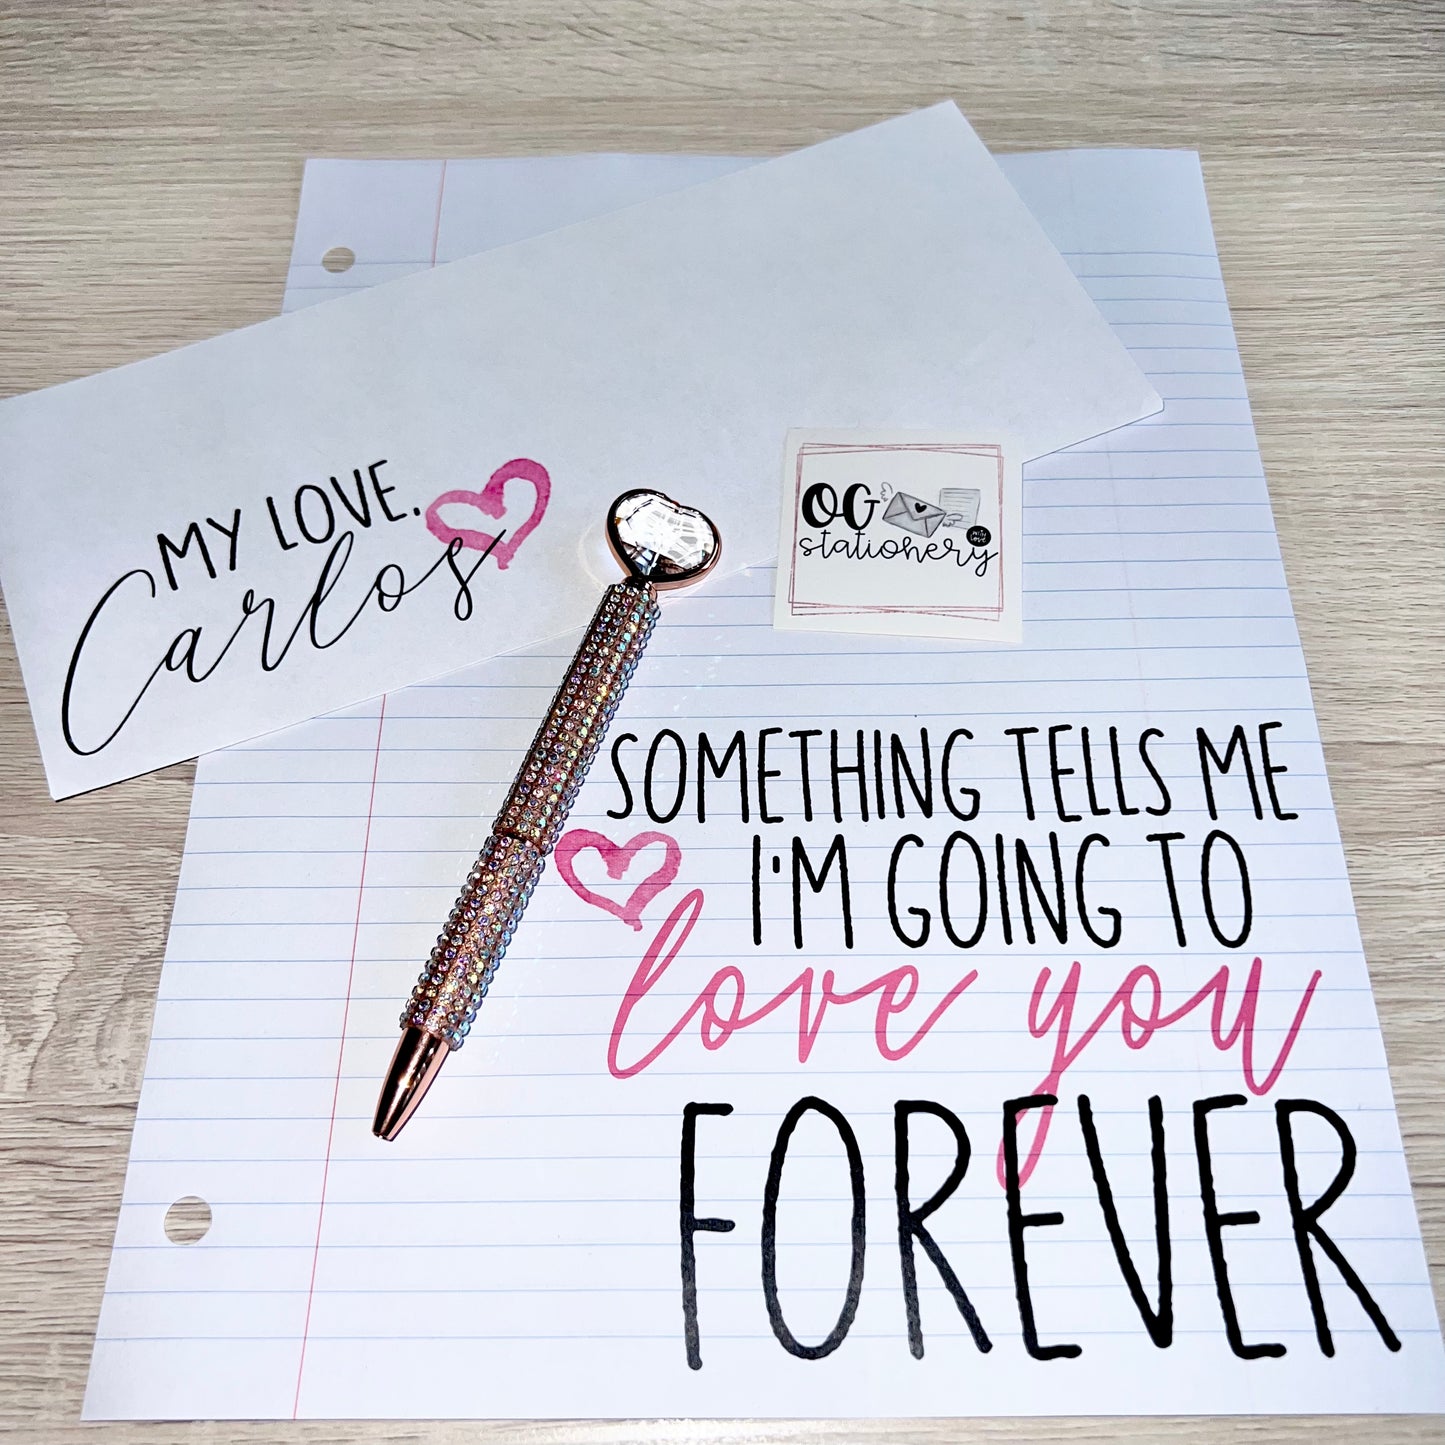 MY LOVE,
Carlos
OG
stationery
with
love
SOMETHING TELLS ME
I'M GOING TO
love you
FOREVER